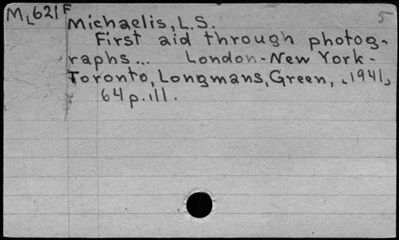 ML621F
Michaelis, L.S. 5
First aid through photog-
raphs... London-New York-
Toronto, Longmans, Green, [1941]
64p. ill.